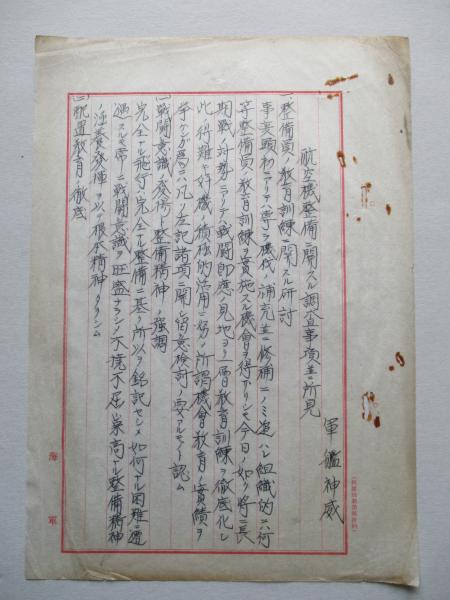 航空機整備ニ関スル調査事項並ニ所見
軍艦神威
一、整備員ノ教育訓練ニ関スル研討
事変頭初ニアリテハ専ラ機代補充並ニ修補ニノミ追ハレ組織的ニハ何
等整備員ノ教育訓練ヲ実施スル機会ヲ得ザリシモ今日ノ如ク将ニ長
期戦ノ対勢ニアリテ戦闘即応ノ見地ヨリ一層教育訓練ヲ徹底化シ
此ノ得難キ好機ノ積極的活用ニ努メ所謂機会教育ノ実績ヲ
挙グルガ為ニハ凡ソ左記諸項ニ関シ留意検討ノ要アルモノト認ム
(一)戦闘意識ノ発揚ト整備精神ノ強調
完全ナル飛行ハ完全ナル整備ニ基ク所以ヲ銘記セシメ如何ナル困難ニ遭
遇スルモ常ニ戦闘意識ヲ旺盛ナラシメ不撓不屈ノ崇高ナル整備精神
ノ涵養発揮ヲ以テ根本精神タラシム
(二)配置教育ノ徹底
海軍